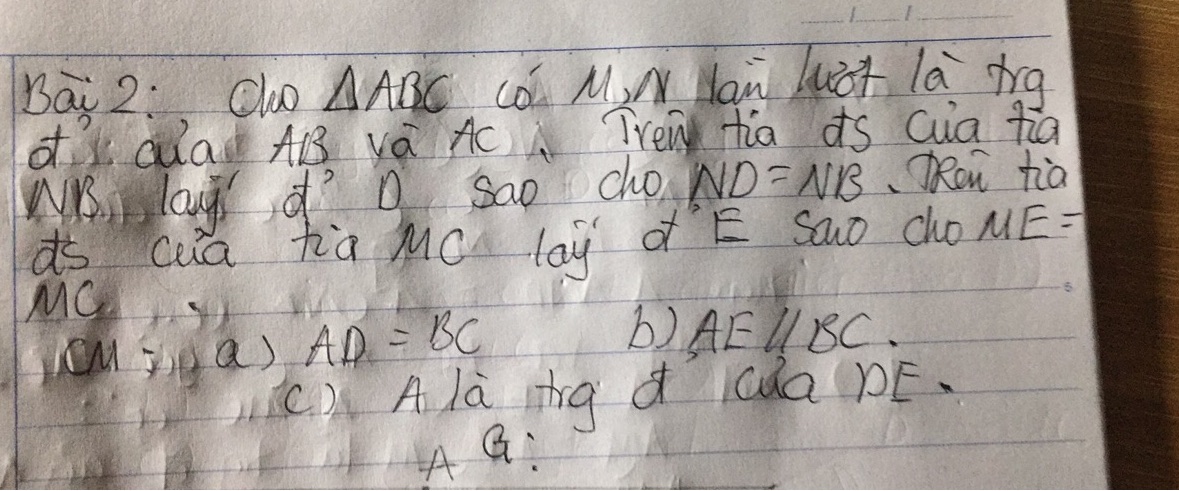 Bài 2: Cho ΔABC có M, N lần lượt là trg
đ' của AB và AC. Trên tia đs của tia
NB, lấy đ' D sao cho ND = NB. Trên tia
đs của tia MC lấy đ' E sao cho ME =
MC.
CM: a) AD = BC b) AE // BC.
c) A là trg đ' của DE.
A G: